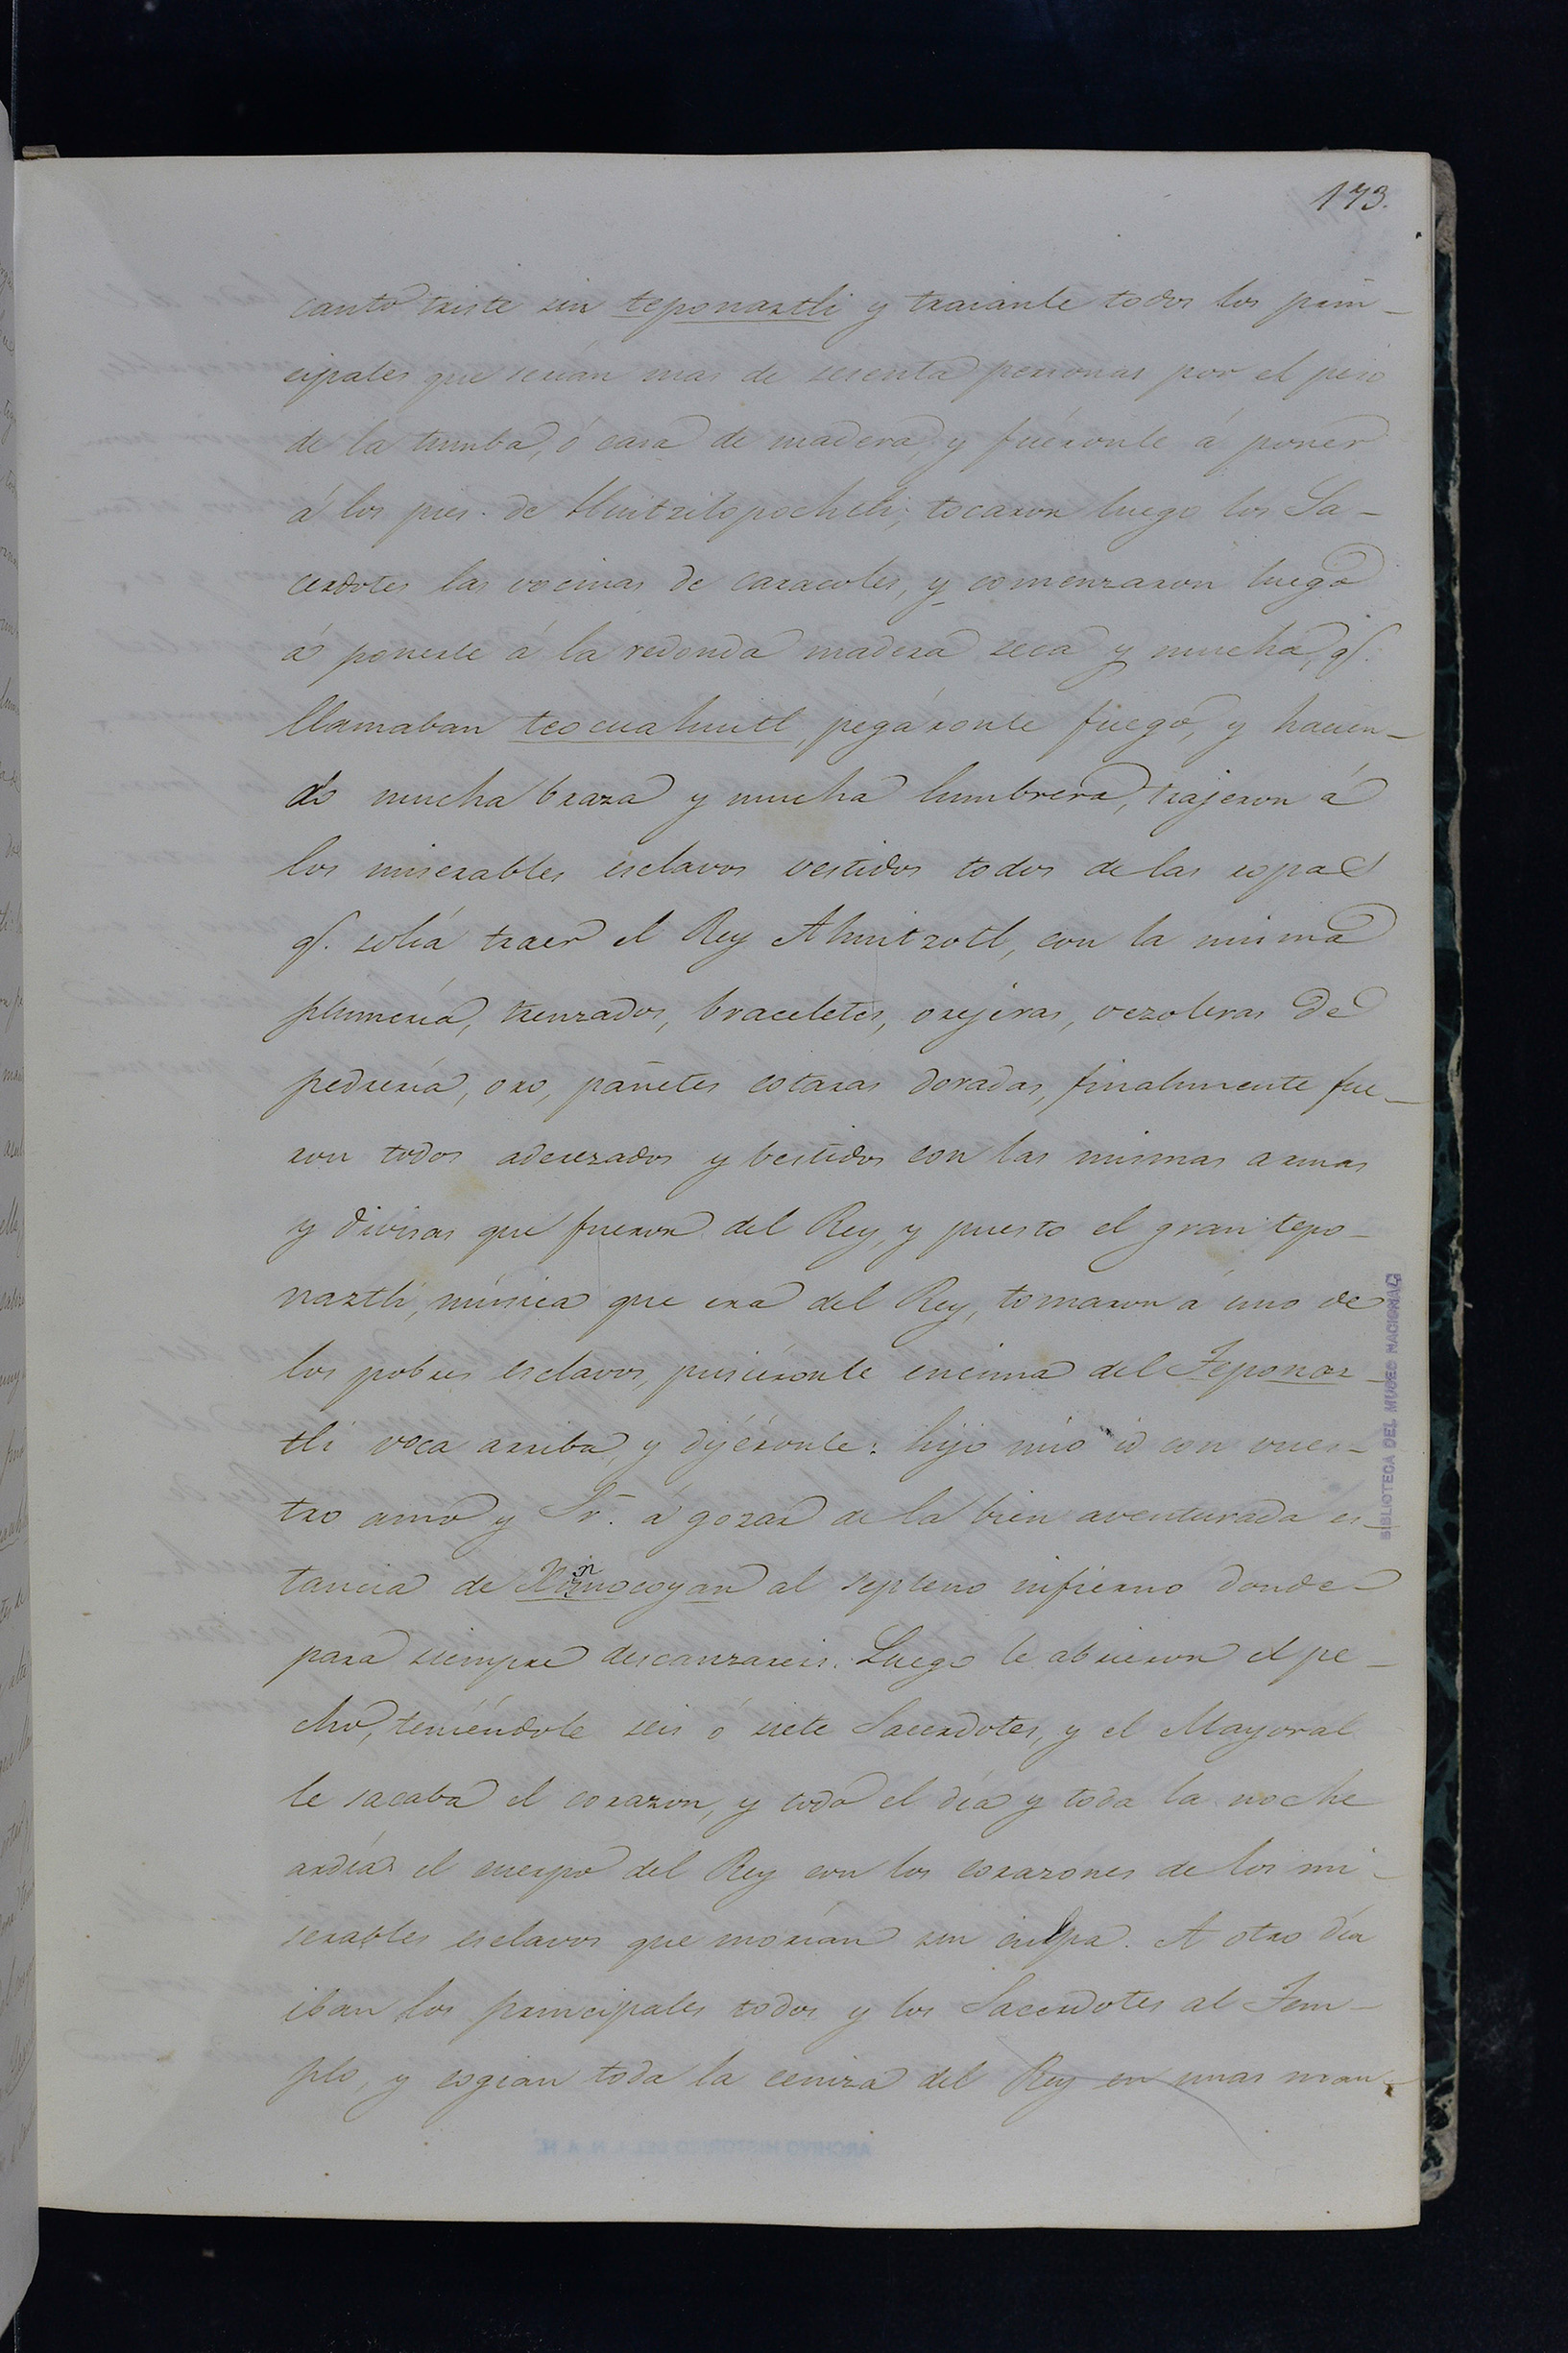 173.
canto triste sin teponaztli y traianle todos los prin-
cipales que serían mas de sesenta personas por el peso
de la tumba, ó casa de madera, y fuéronle á poner
á los pies de Huitzilopochtli; tocaron luego los Sa-
cerdotes las vocinas de caracoles, y comenzaron luego
á ponerle á la redonda madera seca y mucha, q.
llamaban teocuahuitl, pegáronle fuego, y hacien-
do mucha braza y mucha lumbrera, trajeron á
los miserables esclavos vestidos todos de las ropas
q. solía traer el Rey Ahuitzotl, con la misma
plumería, trenzados, braceletes, orejeras, vezoleras de
pedrería, oro, pañetes cotaras doradas, finalmente fue-
ron todos aderezados y bestidos con las mismas armas
y divisas que fueron del Rey, y puesto el gran tepo-
naztli, música que era del Rey, tomaron á uno de
los pobres esclavos, pusiéronle encima del Teponaz-
tli voca arriba, y dijéronle: hijo mío id con vues-
tro amo y Sr. á gozar de la bien aventurada es-
tancia de al septeno infierno donde
para siempre descanzareis. Luego le abrieron el pe-
cho, teniéndole seis ó siete Sacerdotes, y el Mayoral
le sacaba el corazon, y todo el día y toda la noche
ardía el cuerpo del Rey con los corazones de los mi-
serables esclavos que morían sin culpa. A otro día
iban los principales todos y los Sacerdotes al Tem-
plo, y cogian toda la ceniza del Rey en unas man-
BIBLIOTECA DEL MUSEO NACIONAL
ARCHIVO HISTORICO DEL I. N. A. H.